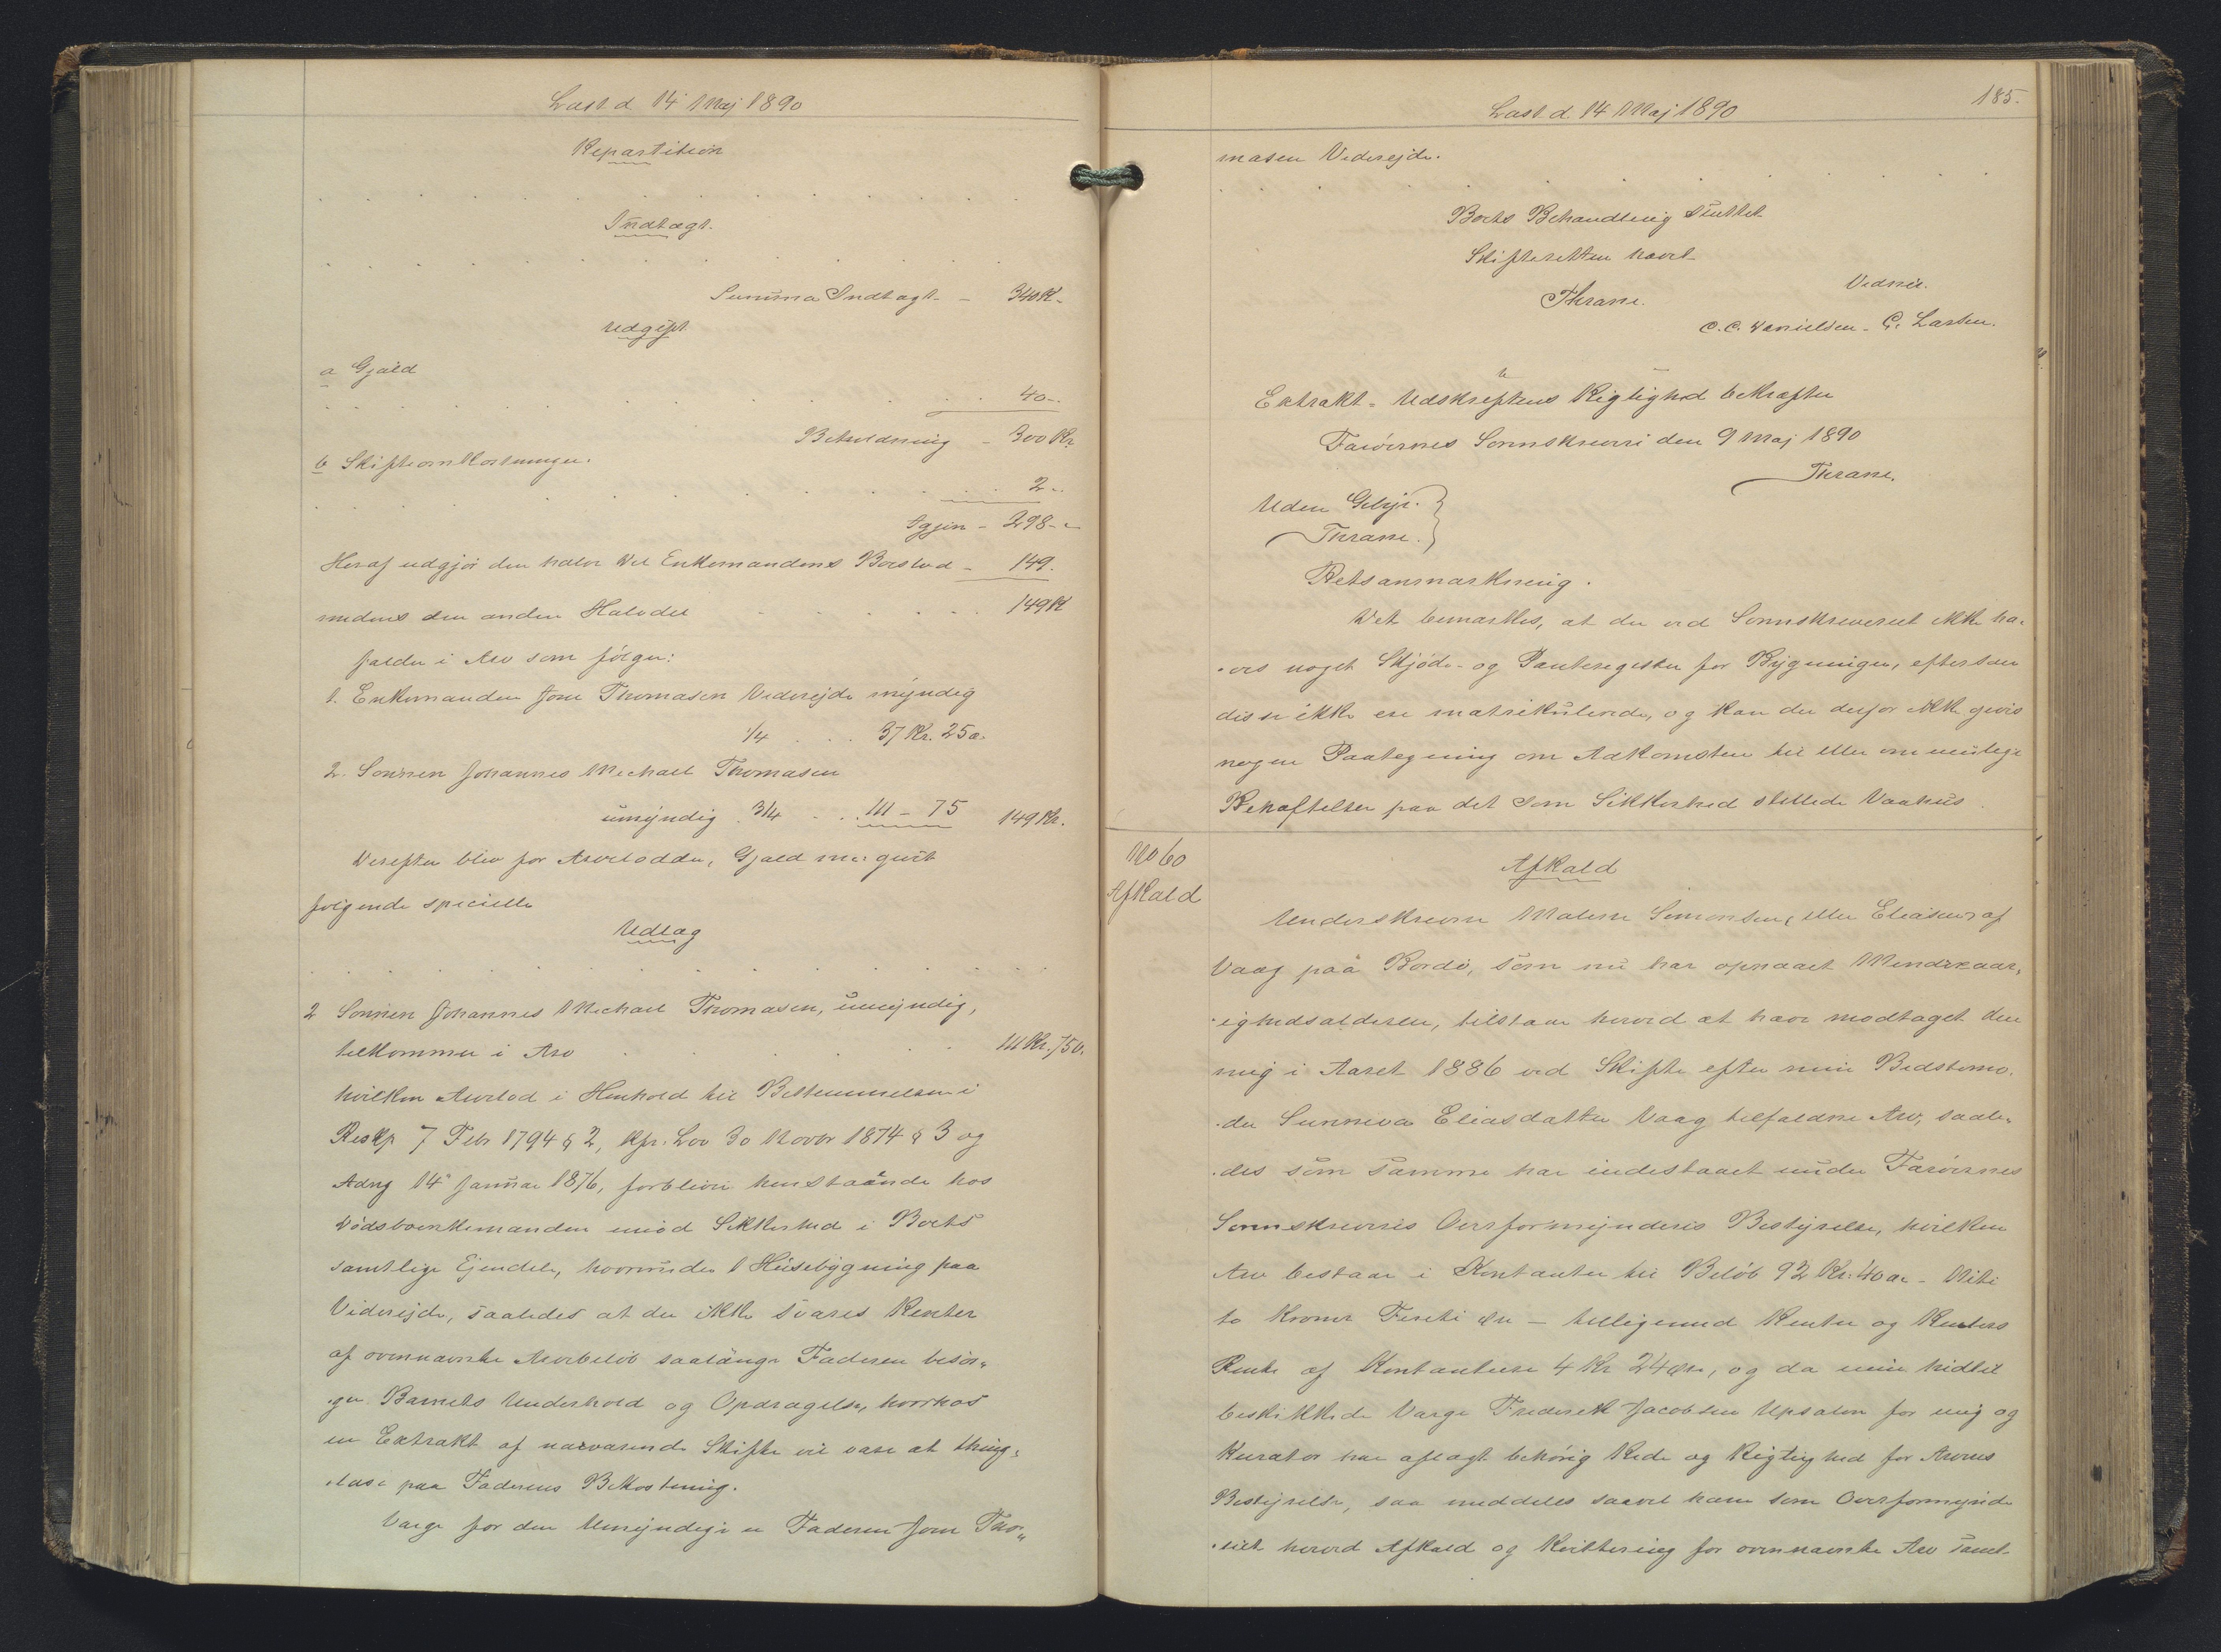 Læst d 14 Maj 1890
Repartition
Indtægt.
Summa Indtægt - 340 K -
Udgift
a Gjæld
40 -
Beholdning - 300 Kr
b Skifteomkostninger.
2 -
Igjen - 298 - -
Heraf udgjør den halve Del Enkemandens Boeslod - 149.
medens den anden Halvdel 149 K
falder i Arv som følger:
1. Enkemanden Joen Thomasen Viderejde myndig
1/4 . . . 37 Kr. 25 ø.
2. Sønnen Johannes Michael Thomasen
umyndig 3/4 . . . 111 - 75 149 Kr.
Derefter blev for Arvelodder, Gjæld m.v. gjort
følgende specielle
Udlæg
2 Sønnen Johannes Michael Thomasen, umyndig,
tilkommer i Arv 111 Kr. 75 ø.
hvilken Arvelod i Henhold til Bestemmelsen i
Reskp 7 Febr 1794 § 2, kfr. Lov 30 Novbr 1874 § 3 og
Adng 14 Januar 1876, forbliver henstaaende hos
Dødsboenkemanden imod Sikkerhed i Boets
samtlige Ejendele, hvorunder 1 Husebygning paa
Viderejde, saaledes at der ikke svares Renter
af ovennævnte Arvebeløb saalænge Faderen besør„
„ger Barnets Underhold og Opdragelse, hvorhos
en Extrakt af nærværende Skifte vil være at thing„
„læse paa Faderens Bekostning.
Værge for den Umyndige er Faderen Joen Tho„
Læst d. 14 Maj 1890 185.
masen Viderejde.
Boets Behandling sluttet
Skifteretten hævet
Vidner.
Thrane.
C. C. Danielsen - G. Larsen.
Extrakt-Udskriftens Rigtighed bekræfter
Færøernes Sorenskriveri den 9 Maj 1890
Thrane.
Uden Gebyr.
Thrane.
Retsanmærkning.
Det bemærkes, at der ved Sorenskriveriet ikke ha„
„ves noget Skjøde- og Panteregister for Bygninger, eftersom
disse ikke ere matrikulerede, og kan der derfor ikke gives
nogen Paategning om Adkomsten til eller om mulige
Behæftelser paa det som Sikkerhed stillede Vaahus.
No 60
Afkald
Afkald
Underskrevne Malene Simonsen, eller Eliasen af
Vaag paa Bordø, som nu har opnaaet Mindreaar„
„ighedsalderen, tilstaar herved at have modtaget den
mig i Aaret 1886 ved Skifte efter min Bedstemo„
„der Sunneva Eliasdatter Vaag tilfaldne Arv, saale„
„des som samme har indestaaet under Færøernes
Sorenskriveris Overformynderis Bestyrelse, hvilken
Arv bestaar i Kontanter til Beløb 92 Kr. 40 Øre - Niti
to Kroner Fireti Øre - tilligemed Renter og Renters
Rente af Kontanterne 4 Kr 24 Øre, og da min hidtil
beskikkede Værge Frederik Jacobsen Upsalen for mig og
Kurator har aflagt behørig Rede og Rigtighed for Arvens
Bestyrelse, saa meddeles saavel ham som Overformynde
„riet herved Afkald og Kvittering for ovennævnte Arv samt